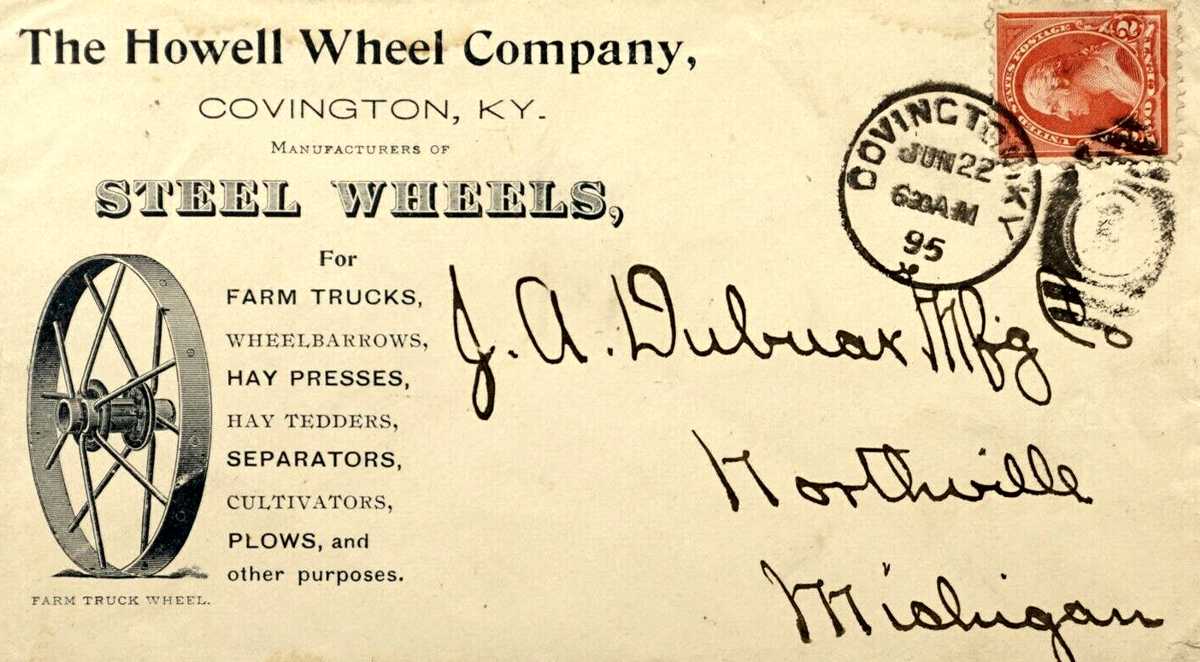 The Howell Wheel Company,
COVINGTON, KY.
MANUFACTURERS OF
STEEL WHEELS,
For
FARM TRUCKS,
WHEELBARROWS,
HAY PRESSES,
HAY TEDDERS,
SEPARATORS,
CULTIVATORS,
PLOWS, and
other purposes.
FARM TRUCK WHEEL.
UNITED STATES POSTAGE
2
COVINGTON, KY
JUN 22
630AM
95
J. A. Dubuar Mfg Co
Northville
Michigan